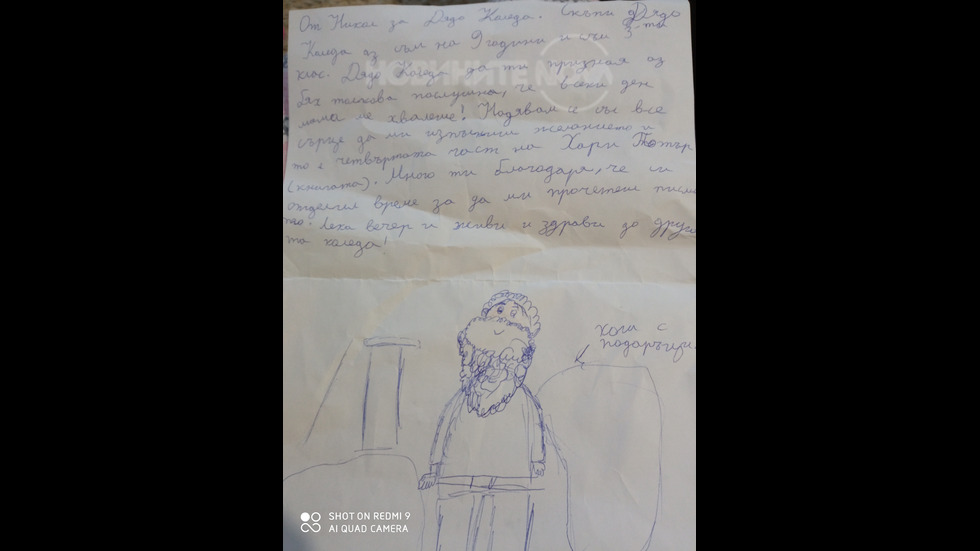 От Никол за Дядо Коледа. Скъпи Дядо
Коледа аз съм на 9 години и съм 3-ти
клас. Дядо Коледа да ти призная аз
бях толкова послушна, че всеки ден
мама ме хвалеше! Надявам се със все
сърце да ми изпълниш желанието и
то е четвъртата част на Хари Потър
(книгата). Много ти благодаря, че си
отделил време за да ми прочетеш писмо
то. Лека вечер и живи и здрави до друга
та коледа!
НОВИНИТЕ NOVA
кога с
подаръци.
SHOT ON REDMI 9
AI QUAD CAMERA